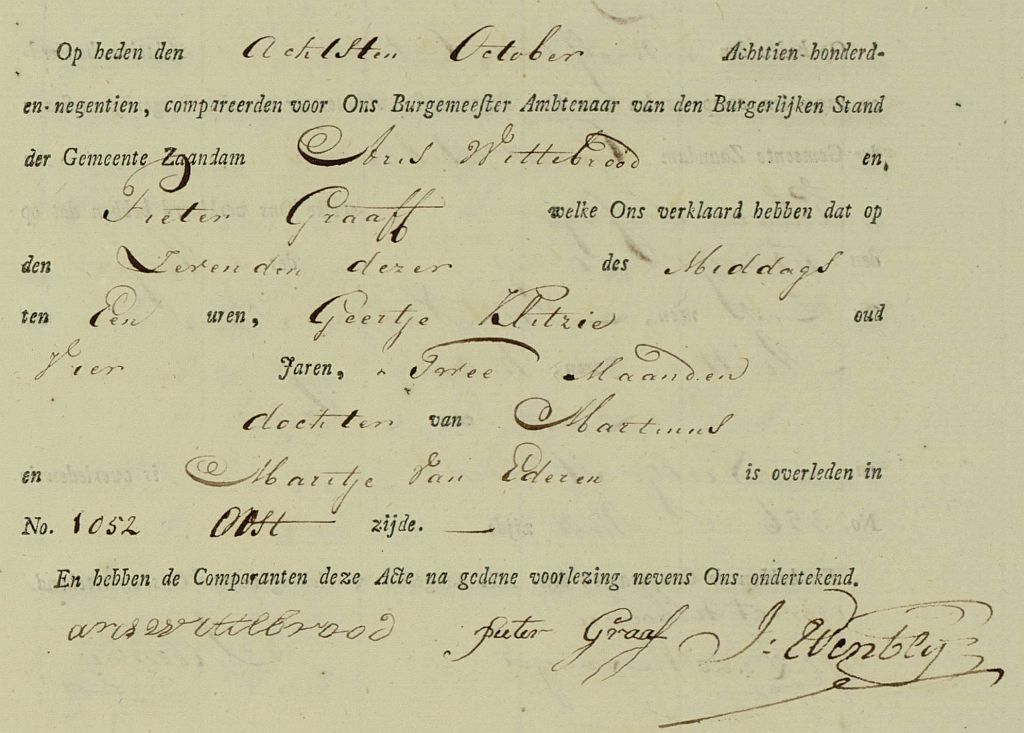 Op heden den Achtsten October Achttien-honderd-
en-negentien, compareerden voor Ons Burgemeester Ambtenaar van den Burgerlijken Stand
der Gemeente Zaandam Aris Wittebrood en,
Pieter Graaff welke Ons verklaard hebben dat op
den Zevenden dezer des Middags
ten Een uren, Geertje Klitzie oud
Vier Jaren, Twee Maanden
dochter van Martinus
en Maritje Van Ederen is overleden in
No. 1052 Oost zijde.
En hebben de Comparanten deze Acte na gedane voorlezing nevens Ons ondertekend.
aris wittebrood pieter Graaf J: